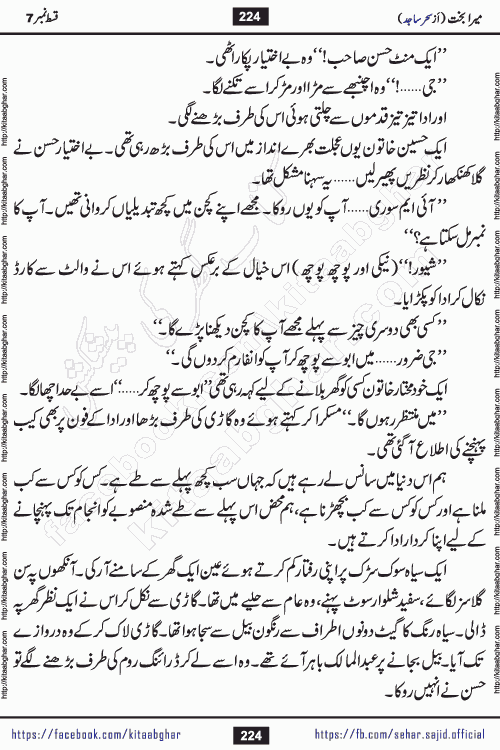 میرا بخت (از سحر ساجد)
224
قسط نمبر 7
’’ایک منٹ حسن صاحب!‘‘ وہ بے اختیار پکار اٹھی۔
’’جی......!‘‘ وہ اچنبھے سے مڑا اور مڑ کر اسے تکنے لگا۔
اور ادا تیز تیز قدموں سے چلتی ہوئی اس کی طرف بڑھنے لگی۔
ایک حسین خاتون یوں عجلت بھرے انداز میں اس کی طرف بڑھ رہی تھی۔ بے اختیار حسن نے
گلا کھنکھار کر نظریں پھیر لیں......یہ سہنا مشکل تھا۔
’’آئی ایم سوری......آپ کو یوں روکا۔ مجھے اپنے کچن میں کچھ تبدیلیاں کروانی تھیں۔ آپ کا
نمبر مل سکتا ہے؟‘‘
’’شیور!‘‘ (نیکی اور پوچھ پوچھ) اس خیال کے برعکس کہتے ہوئے اس نے والٹ سے کارڈ
نکال کر ادا کو پکڑایا۔
’’کسی بھی دوسری چیز سے پہلے مجھے آپ کا کچن دیکھنا پڑے گا۔‘‘
’’جی ضرور......میں ابو سے پوچھ کر آپ کو انفارم کر دوں گی۔‘‘
ایک خود مختار خاتون کسی کو گھر بلانے کے لیے کہہ رہی تھی ’’ابو سے پوچھ کر......‘‘ اسے بے حد اچھا لگا۔
’’میں منتظر رہوں گا۔‘‘ مسکرا کر کہتے ہوئے وہ گاڑی کی طرف بڑھا اور ادا کے فون پر بھی کیب
پہنچنے کی اطلاع آ گئی تھی۔
ہم اس دنیا میں سانس لے رہے ہیں کہ جہاں سب کچھ پہلے سے طے ہے۔ کس کو کس سے کب
ملنا ہے اور کس کو کس سے کب بچھڑنا ہے، ہم محض اس پہلے سے طے شدہ منصوبے کو انجام تک پہنچانے
کے لیے اپنا کردار ادا کرتے ہیں۔
ایک سیاہ سوک سڑک پر اپنی رفتار کم کرتے ہوئے عین ایک گھر کے سامنے آ رکی۔ آنکھوں پہ سن
گلاسز لگائے، سفید شلوار سوٹ پہنے، وہ عام سے حلیے میں تھا۔ گاڑی سے نکل کر اس نے ایک نظر گھر پہ
ڈالی۔ سیاہ رنگ کا گیٹ دونوں اطراف سے رنگون بیل سے سجا ہوا تھا۔ گاڑی لاک کر کے وہ دروازے
تک آیا۔ بیل بجانے پر عبدالمالک باہر آئے تھے۔ وہ اسے لے کر ڈرائنگ روم کی طرف بڑھنے لگے تو
حسن نے انہیں روکا۔
https://facebook.com/kitaabghar
224
https://fb.com/sehar.sajid.official
http://kitaabghar.com